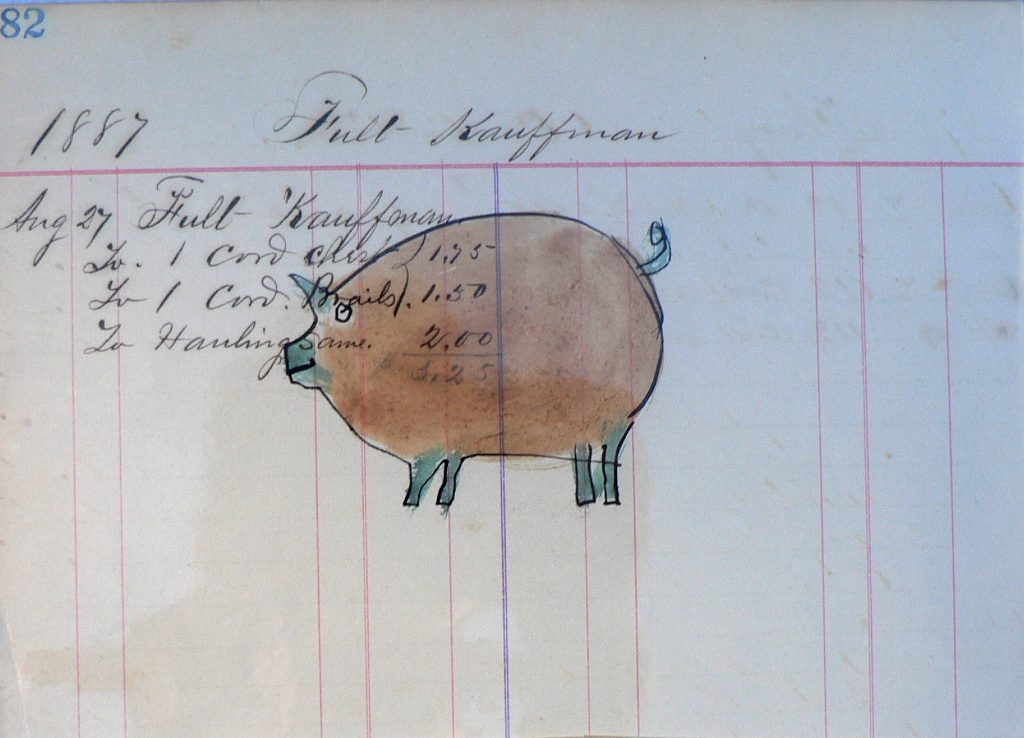 82
1887 Fult Kauffman
Aug 27 Fult Kauffman
To. 1 Cord 1.75
To 1 Cord. 1.50
To Hauling Same. 2.00
5.25